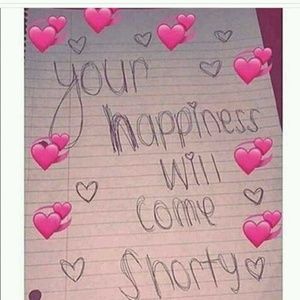 your
happiness
will
come
shorty